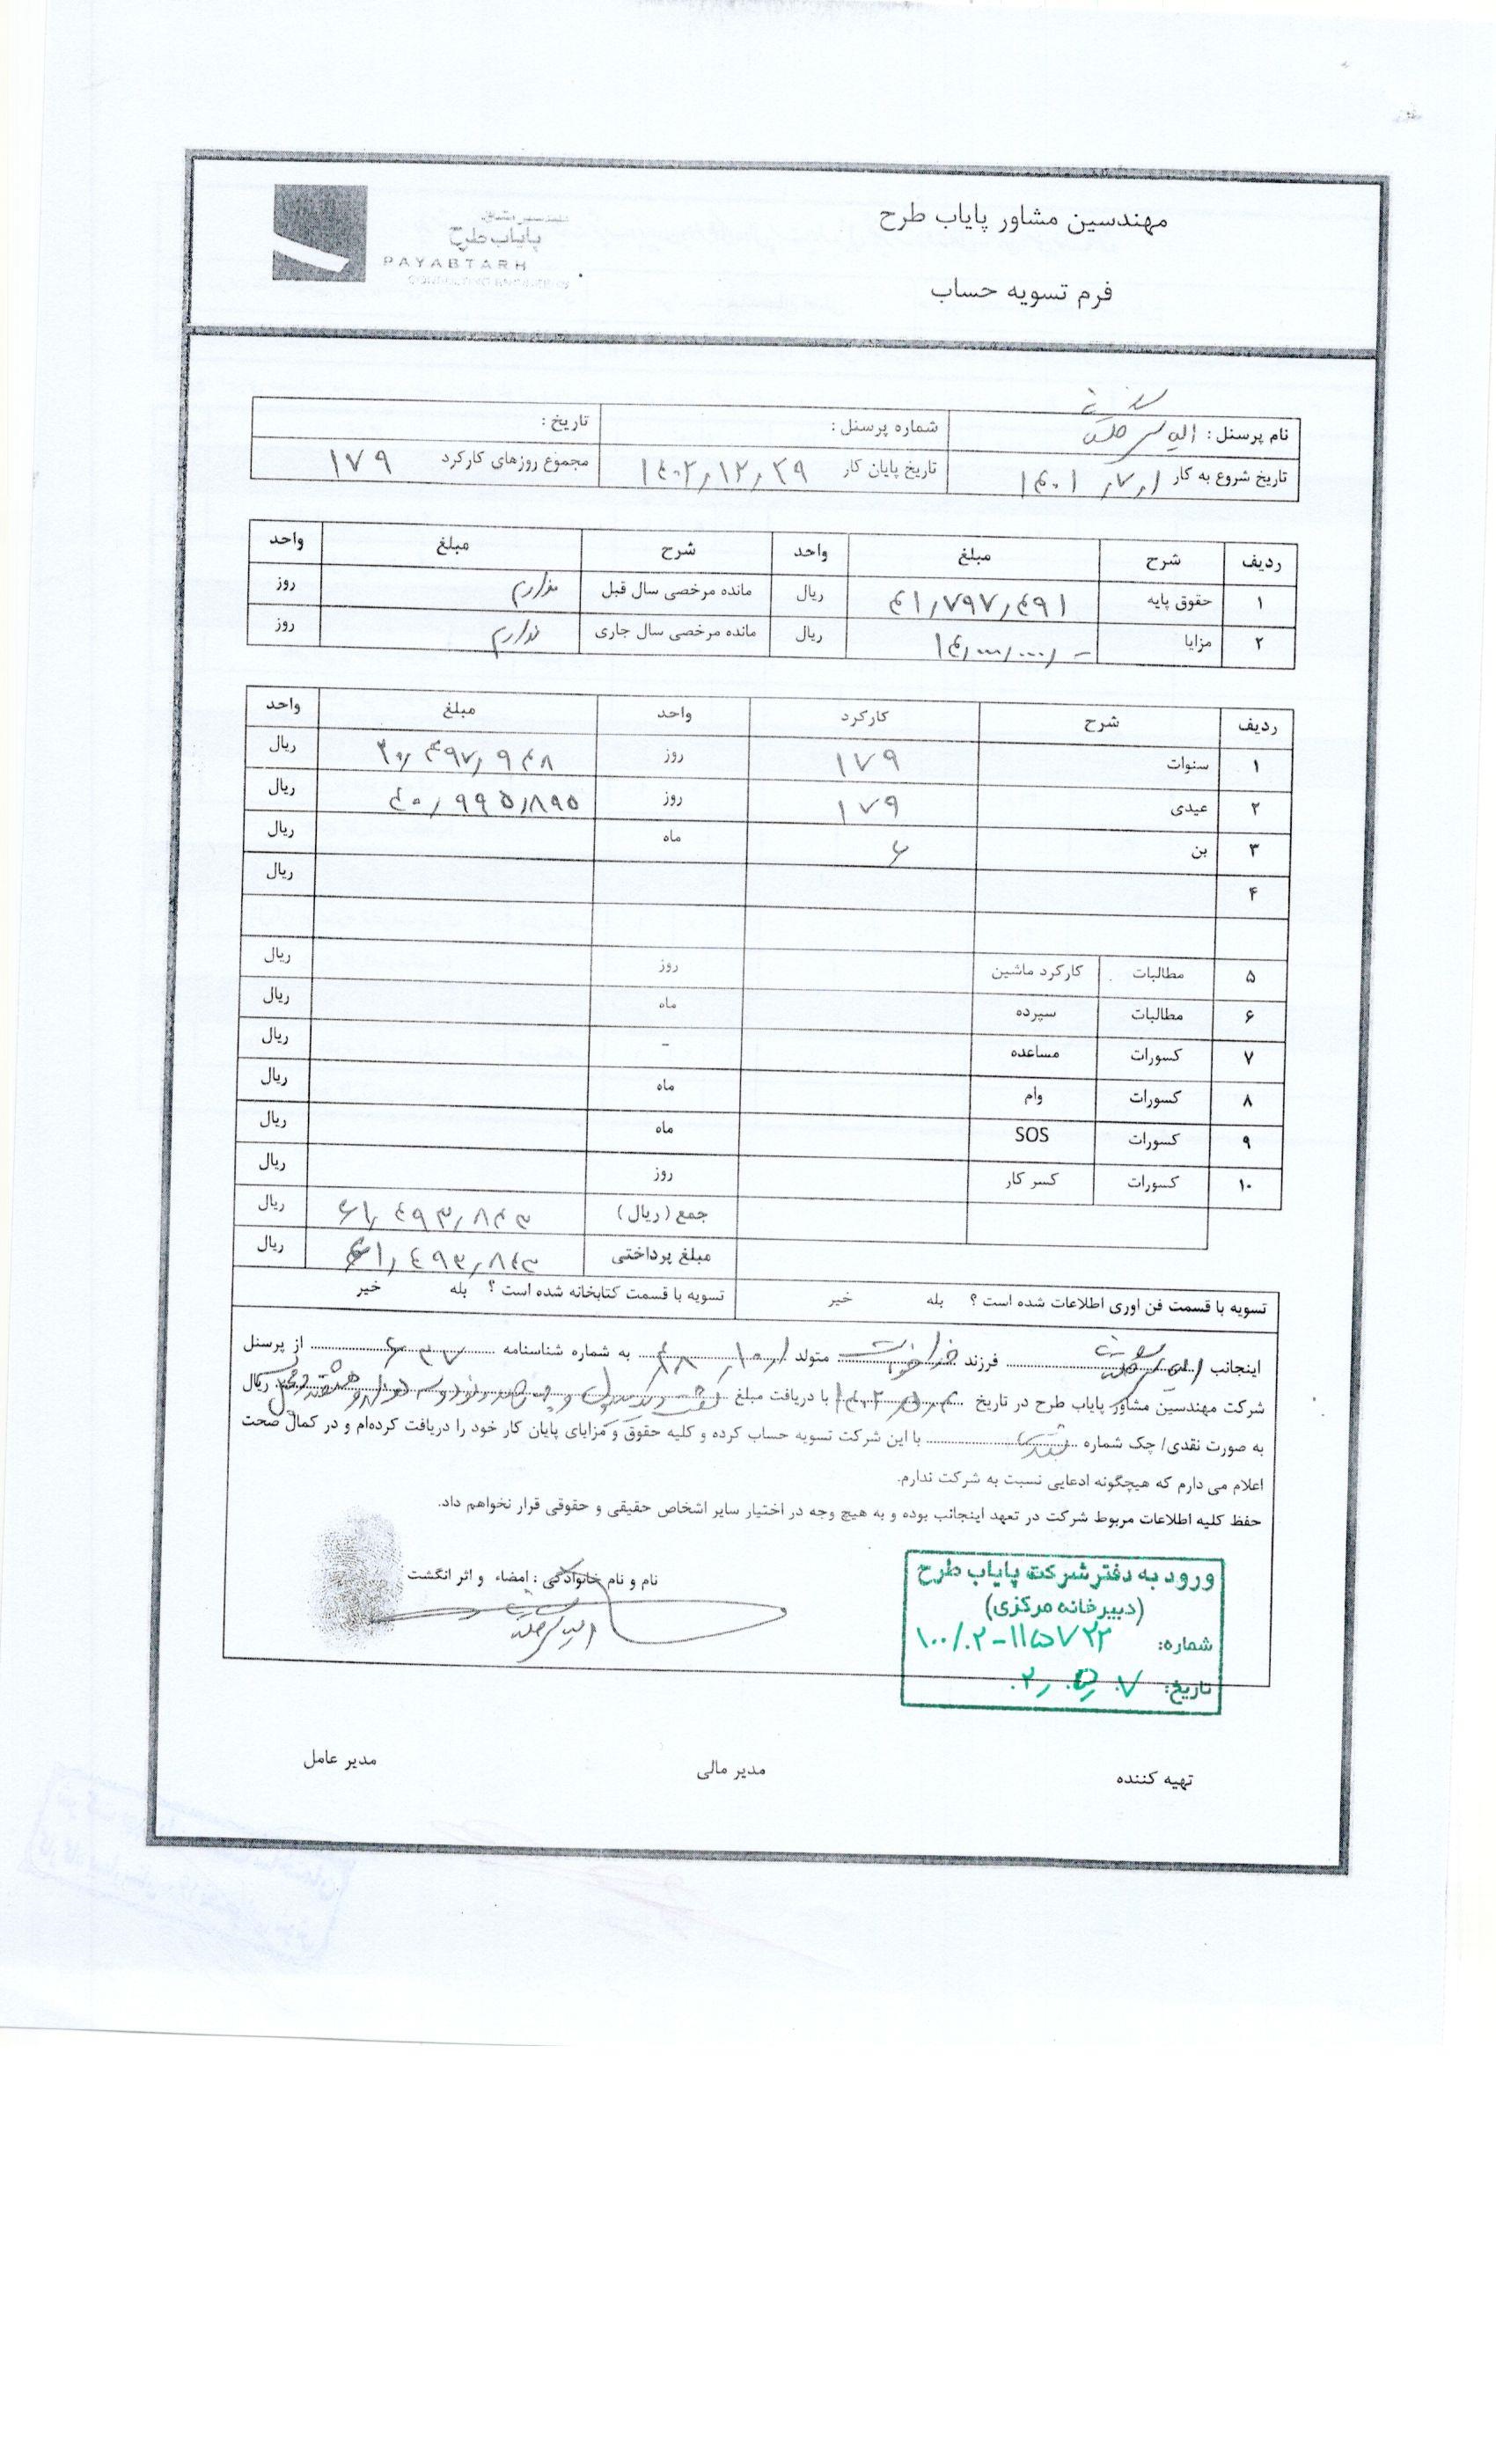 مهندسین مشاور پایاب طرح
مهندسین مشاور
پایاب طرح
PAYABTARH
CONSULTING ENGINEERS
فرم تسویه حساب
نام پرسنل : شماره پرسنل : تاریخ :
تاریخ شروع به کار ۱۴۰۱٫۷٫۱ تاریخ پایان کار ۱۴۰۲٫۱۲٫۲۹ مجموع روزهای کارکرد ۱۷۹
ردیف شرح مبلغ واحد شرح مبلغ واحد
۱ حقوق پایه ۴۱٫۷۹۷٫۴۹۱ ریال مانده مرخصی سال قبل ندارم روز
۲ مزایا ۱۴٫۰۰۰٫۰۰۰٫- ریال مانده مرخصی سال جاری ندارم روز
ردیف شرح کارکرد واحد مبلغ واحد
۱ سنوات ۱۷۹ روز ۲۰٫۴۹۷٫۹۴۸ ریال
۲ عیدی ۱۷۹ روز ۴۰٫۹۹۵٫۸۹۵ ریال
۳ بن ۶ ماه ریال
۴ ریال
۵ مطالبات کارکرد ماشین روز ریال
۶ مطالبات سپرده ماه ریال
۷ کسورات مساعده - ریال
۸ کسورات وام ماه ریال
۹ کسورات SOS ماه ریال
۱۰ کسورات کسر کار روز ریال
جمع (ریال) ۶۱٫۴۹۳٫۸۴۳ ریال
مبلغ پرداختی ۶۱٫۴۹۳٫۸۴۳ ریال
تسویه با قسمت فن اوری اطلاعات شده است ؟ بله خیر تسویه با قسمت کتابخانه شده است ؟ بله خیر
اینجانب فرزند متولد به شماره شناسنامه ۶۳۷ از پرسنل
شرکت مهندسین مشاور پایاب طرح در تاریخ با دریافت مبلغ ریال
به صورت نقدی/ چک شماره با این شرکت تسویه حساب کرده و کلیه حقوق و مزایای پایان کار خود را دریافت کرده‌ام و در کمال صحت
اعلام می دارم که هیچگونه ادعایی نسبت به شرکت ندارم.
حفظ کلیه اطلاعات مربوط شرکت در تعهد اینجانب بوده و به هیچ وجه در اختیار سایر اشخاص حقیقی و حقوقی قرار نخواهم داد.
نام و نام خانوادگی : امضاء و اثر انگشت
ورود به دفتر شرکت پایاب طرح
(دبیرخانه مرکزی)
شماره: ۱۰۰/۰۲-۱۱۵۷۲۲
تاریخ: ۰۲٫۰۵٫۰۷
تهیه کننده مدیر مالی مدیر عامل